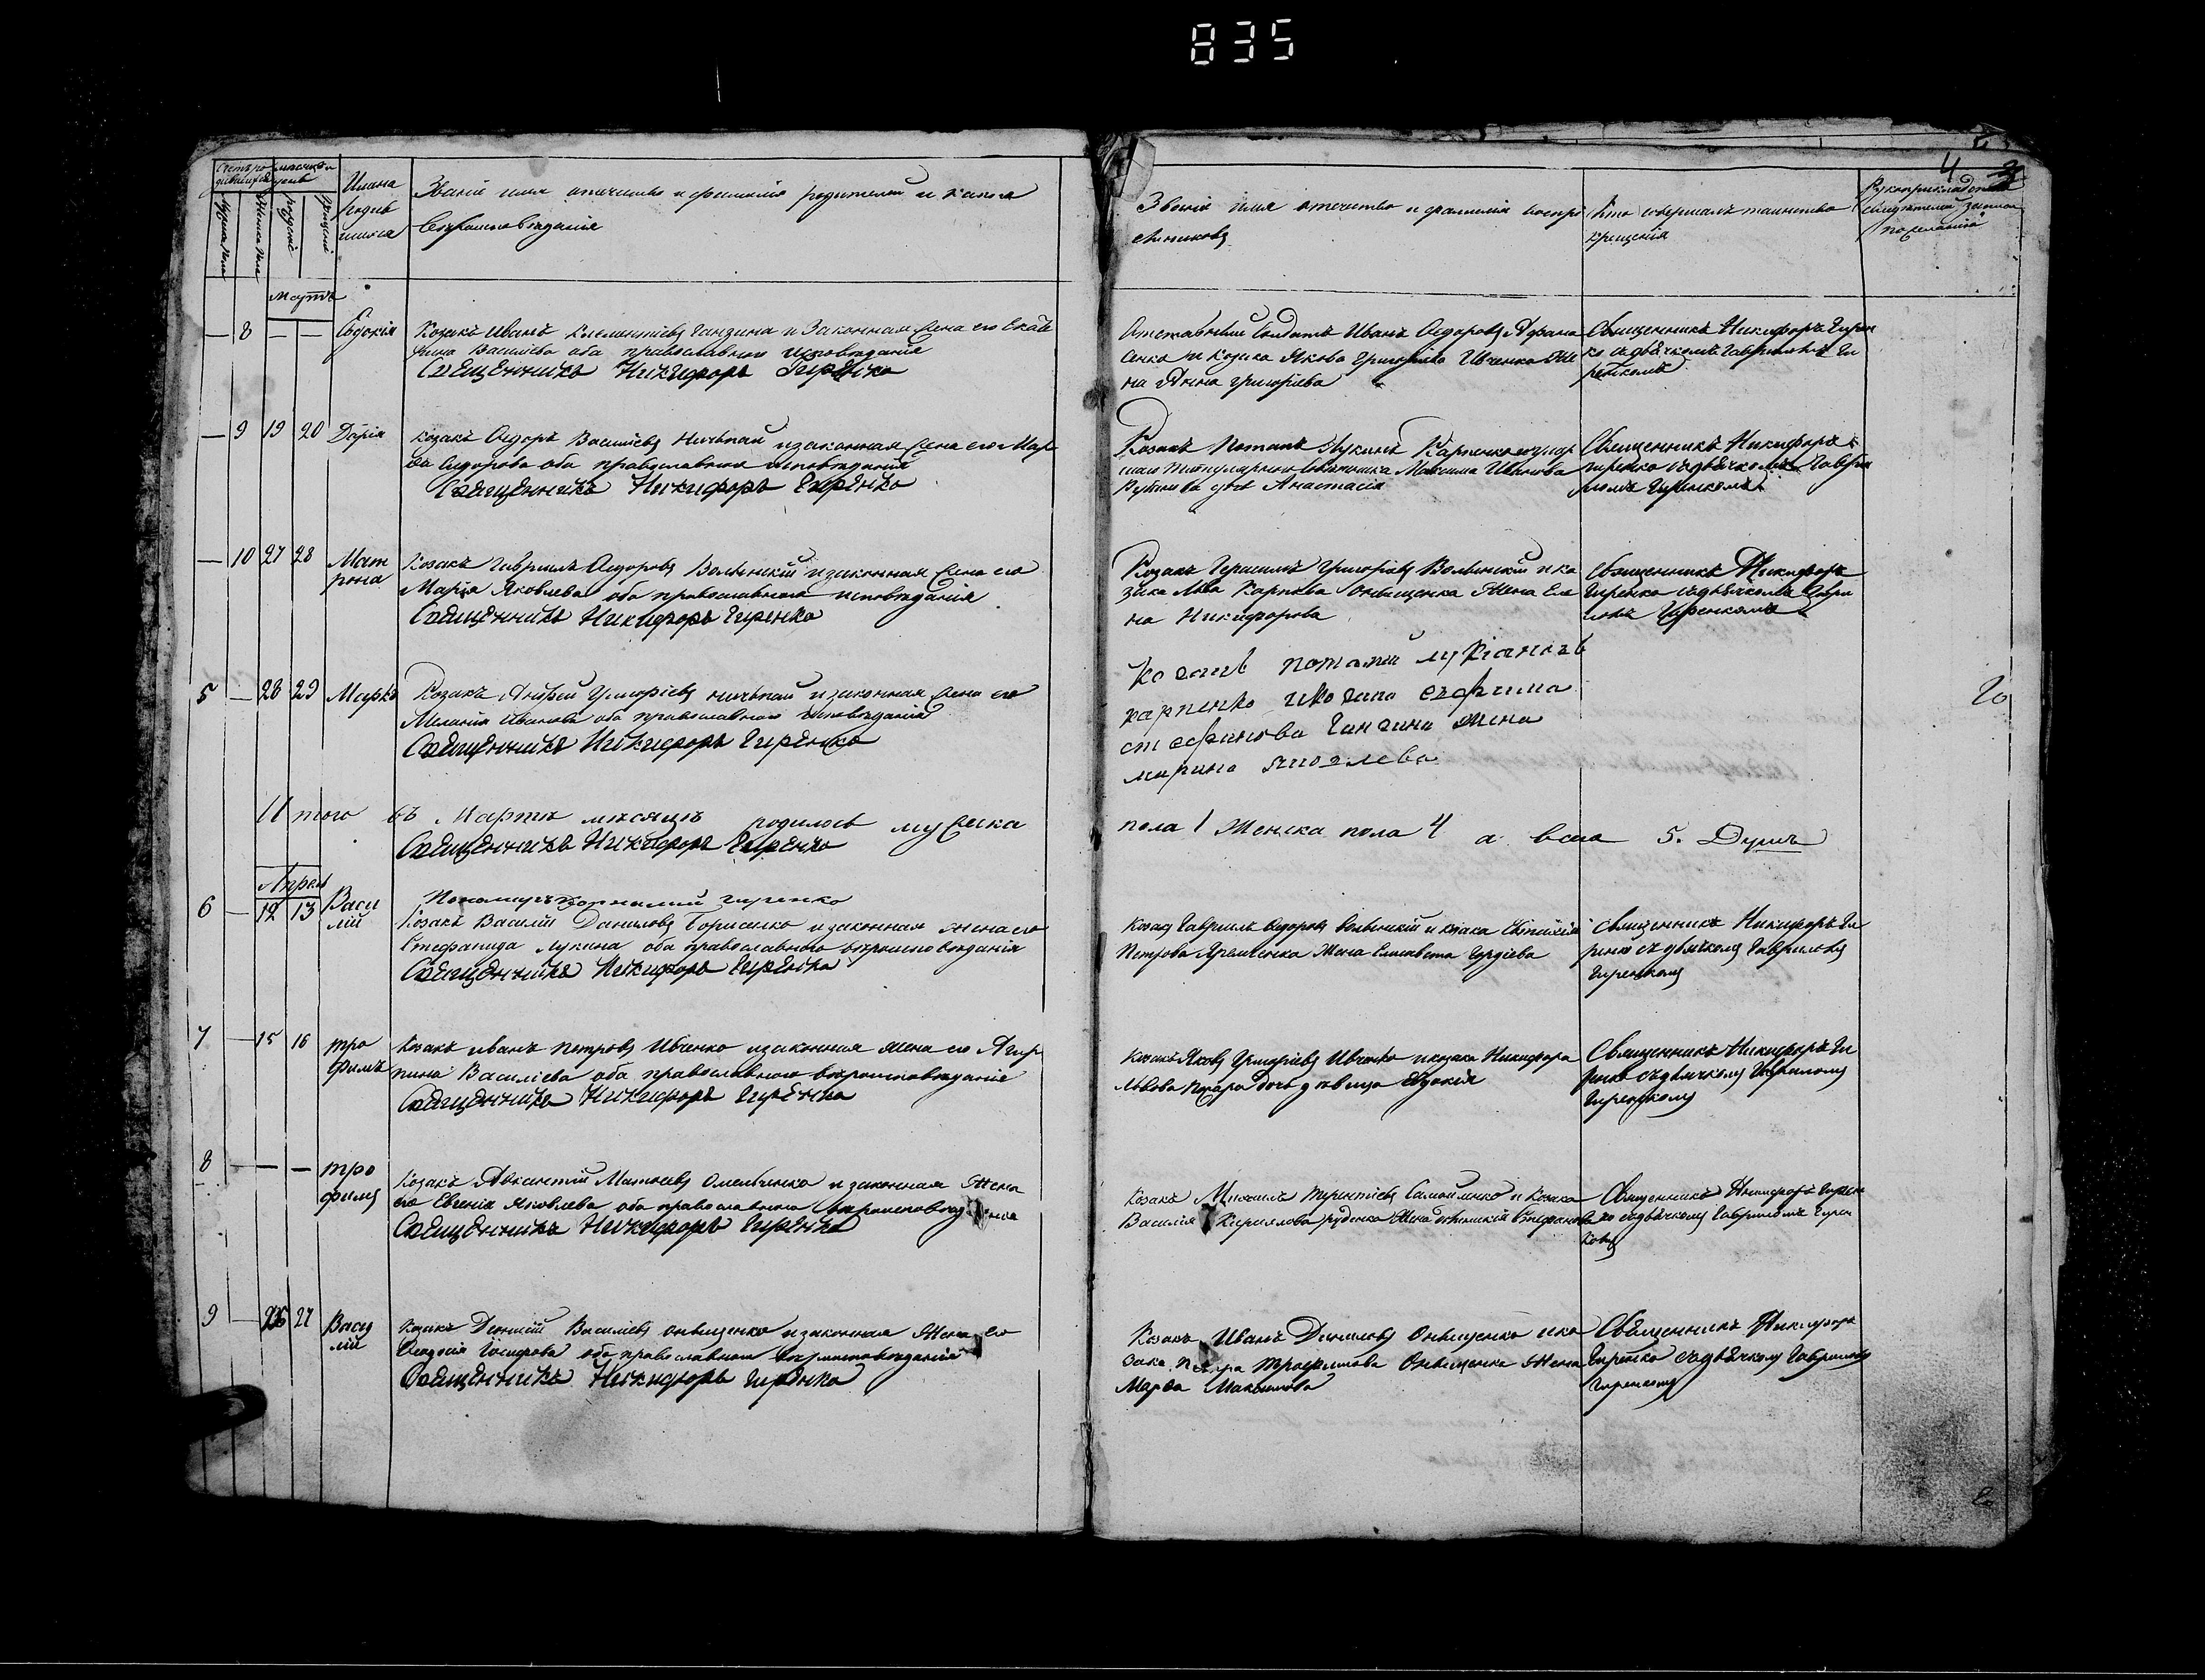 835
4
Счетъ ро
дившихся
мѣсяцъ и
день
Имена
родив
шихся
Званіе имя отечество и фамилія родителей и какого
вѣроисповѣданія
мужеска пола
женска пола
рожденія
крещенія
Званіе имя отечество и фамилія воспрі
емниковъ
Кто совершалъ таинство
крещенія
Рукоприкладство
свидѣтелей записи
по желанію
Мартъ
— 8 — — Евдокія
Козакъ Иванъ Клементіевъ Ганзина и законная жена его Екате
рина Василіева оба православнаго исповѣданія
Священникъ Никифоръ Гиренко
Отставный Солдатъ Иванъ Ѳедоровъ
енко и козака Якова Григоріева Ивченка же
на Анна Григоріева
Священникъ Никифоръ Гирен
ко съ дьячкомъ Гавриломъ Ги
ренкомъ
— 9 19 20 Дарія
Козакъ Ѳедоръ Василіевъ Ничѣпай и законная жена его Мар
ѳа Сидорова оба православнаго исповѣданія
Священникъ Никифоръ Гиренко
Козакъ Потапъ Лукинъ Карпенко и умер
шаго Титулярнаго Совѣтника Максима Иванова
дочь Анастасія
Священникъ Никифоръ
Гиренко съ дьячкомъ Гаври
ломъ Гиренкомъ
— 10 27 28 Мат
рона
Козакъ Гаврилъ Ѳедоровъ Волынскій и законная жена его
Марія Яковлева оба православнаго исповѣданія
Священникъ Никифоръ Гиренко
Козакъ Герасимъ Григоріевъ Волынскій и ка
зака Льва Карпова Онищенка жена Еле
на Никифорова
Священникъ Никифоръ
Гиренко съ дьячкомъ Гаври
ломъ Гиренкомъ
5 — 28 29 Марко
Козакъ Андрей Григоріевъ Ничѣпай и законная жена его
Меланія Иванова оба православнаго исповѣданія
Священникъ Никифоръ Гиренко
козакъ потапій лукіановъ
карпенко икозака ефима
стефанова Ганзина жена
марина яковлева
Итого въ Мартѣ мѣсяцѣ родилось мужеска
пола 1 женска пола 4 а всего 5. Душъ
Священникъ Никифоръ Гиренко
Пономарь Корнилій Гиренко
Апрель
6 — 12 13 Васи
лій
Козакъ Василій Даниловъ Борисенко и законная жена его
Стефанида Лукина оба православнаго вѣроисповѣданія
Священникъ Никифоръ Гиренко
Козакъ Гаврилъ Ѳедоровъ Волынскій и козака
Петрова Яременка жена Елисавета Гордіева
Священникъ Никифоръ Ги
ренко съ дьячкомъ Гавриломъ
Гиренкомъ
7 — 15 16 Тро
фимъ
Козакъ Иванъ Петровъ Ивченко и законная жена его Агрип
пина Василіева оба православнаго вѣроисповѣданія
Священникъ Никифоръ Гиренко
Козакъ Яковъ Григоріевъ Ивченко и козака Никифора
Львова дочь дѣвица Евдокія
Священникъ Никифоръ Ги
ренко съ дьячкомъ Гавриломъ
Гиренкомъ
8 — — — Тро
фимъ
Козакъ Авксентій Матѳеевъ Омельченко и законная жена
его Евгенія Яковлева оба православнаго вѣроисповѣданія
Священникъ Никифоръ Гиренко
Козакъ Михаилъ Терентіевъ Самойленко и козака
Василія Кирилова Руденка жена Стефанова
Священникъ Никифоръ Гирен
ко съ дьячкомъ Гавриломъ Гирен
комъ
9 — 26 27 Васи
лій
Козакъ Діонисій Василіевъ Онищенко и законная жена его
Ѳеодосія Іосифова оба православнаго вѣроисповѣданія
Священникъ Никифоръ Гиренко
Козакъ Иванъ Даниловъ Онищенко и ко
зака Петра Трофимова Онищенка жена
Марѳа Максимова
Священникъ Никифоръ
Гиренко съ дьячкомъ Гавриломъ
Гиренкомъ